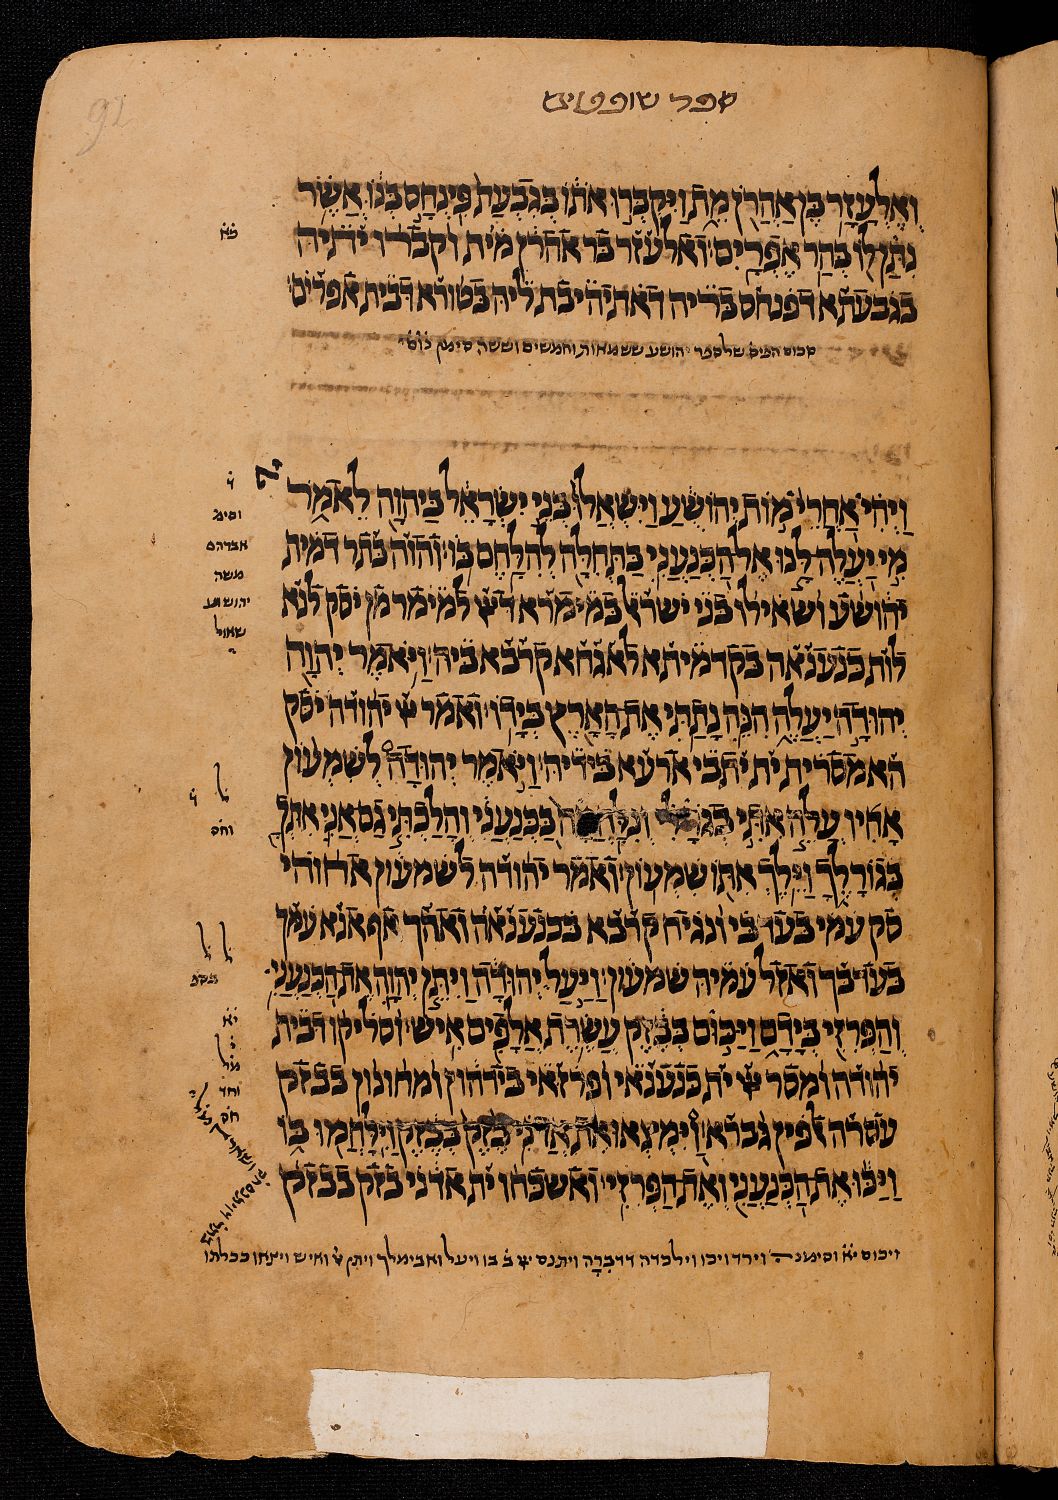 ספר שופטים
וְאֶלְעָזָר בֶּן אַהֲרֹן מֵת וַיִּקְבְּרוּ אֹתוֹ בְּגִבְעַת פִּינְחָס בְּנוֹ אֲשֶׁר
נִתַּן לוֹ בְּהַר אֶפְרָיִם׃ ואלעזר בר אהרן מית וקברו יתיה
בגבעתא דפנחס בריה דאתיהיבת ליה בטורא דבית אפרים׃
סכום הפס׳ שלספר יהושע שש מאות וחמשים וששה סימן
וַיְהִי אַחֲרֵי מוֹת יְהוֹשֻׁעַ וַיִּשְׁאֲלוּ בְּנֵי יִשְׂרָאֵל בַּיהוָה לֵאמֹר
מִי יַעֲלֶה לָּנוּ אֶל הַכְּנַעֲנִי בַּתְּחִלָּה לְהִלָּחֶם בּוֹ׃ והוה בתר דמית
יהושע ושאילו בני ישראל במימרא דיי למימר מן יסק לנא
לות כנענאה בקדמיתא לאגחא קרבא ביה׃ וַיֹּאמֶר יְהוָה
יְהוּדָה יַעֲלֶה הִנֵּה נָתַתִּי אֶת הָאָרֶץ בְּיָדוֹ׃ ואמר יי יהודה יסק
הא מסרית ית יתבי ארעא בידיה׃ וַיֹּאמֶר יְהוּדָה לְשִׁמְעוֹן
אָחִיו עֲלֵה אִתִּי בְגוֹרָלִי וְנִלָּחֲמָה בַּכְּנַעֲנִי וְהָלַכְתִּי גַם אֲנִי אִתְּךָ
בְּגוֹרָלֶךָ וַיֵּלֶךְ אִתּוֹ שִׁמְעוֹן׃ ואמר יהודה לשמעון אחוהי
סק עמי בעדבי ונגיח קרבא בכנענאה ואהך אף אנא עמך
בעדבך ואזל עמיה שמעון׃ וַיַּעַל יְהוּדָה וַיִּתֵּן יְהוָה אֶת הַכְּנַעֲנִי
וְהַפְּרִזִּי בְּיָדָם וַיַּכּוּם בְּבֶזֶק עֲשֶׂרֶת אֲלָפִים אִישׁ׃ וסליקו דבית
יהודה ומסר יי ית כנענאי ופרזאי בידהון ומחונון בבזק
עסרה אלפין גברא׃ וַיִּמְצְאוּ אֶת אֲדֹנִי בֶזֶק בְּבֶזֶק וַיִּלָּחֲמוּ בּוֹ
וַיַּכּוּ אֶת הַכְּנַעֲנִי וְאֶת הַפְּרִזִּי׃ ואשכחו ית אדני בזק בבזק
וסימנ
אברהם
משה
יהושוע
שאול
ויכום יא וסימנה וירד ויכו וילכדה דדברה וינס בו ויעל ואבימלך ויתן ואיש ויצאו ככלתו